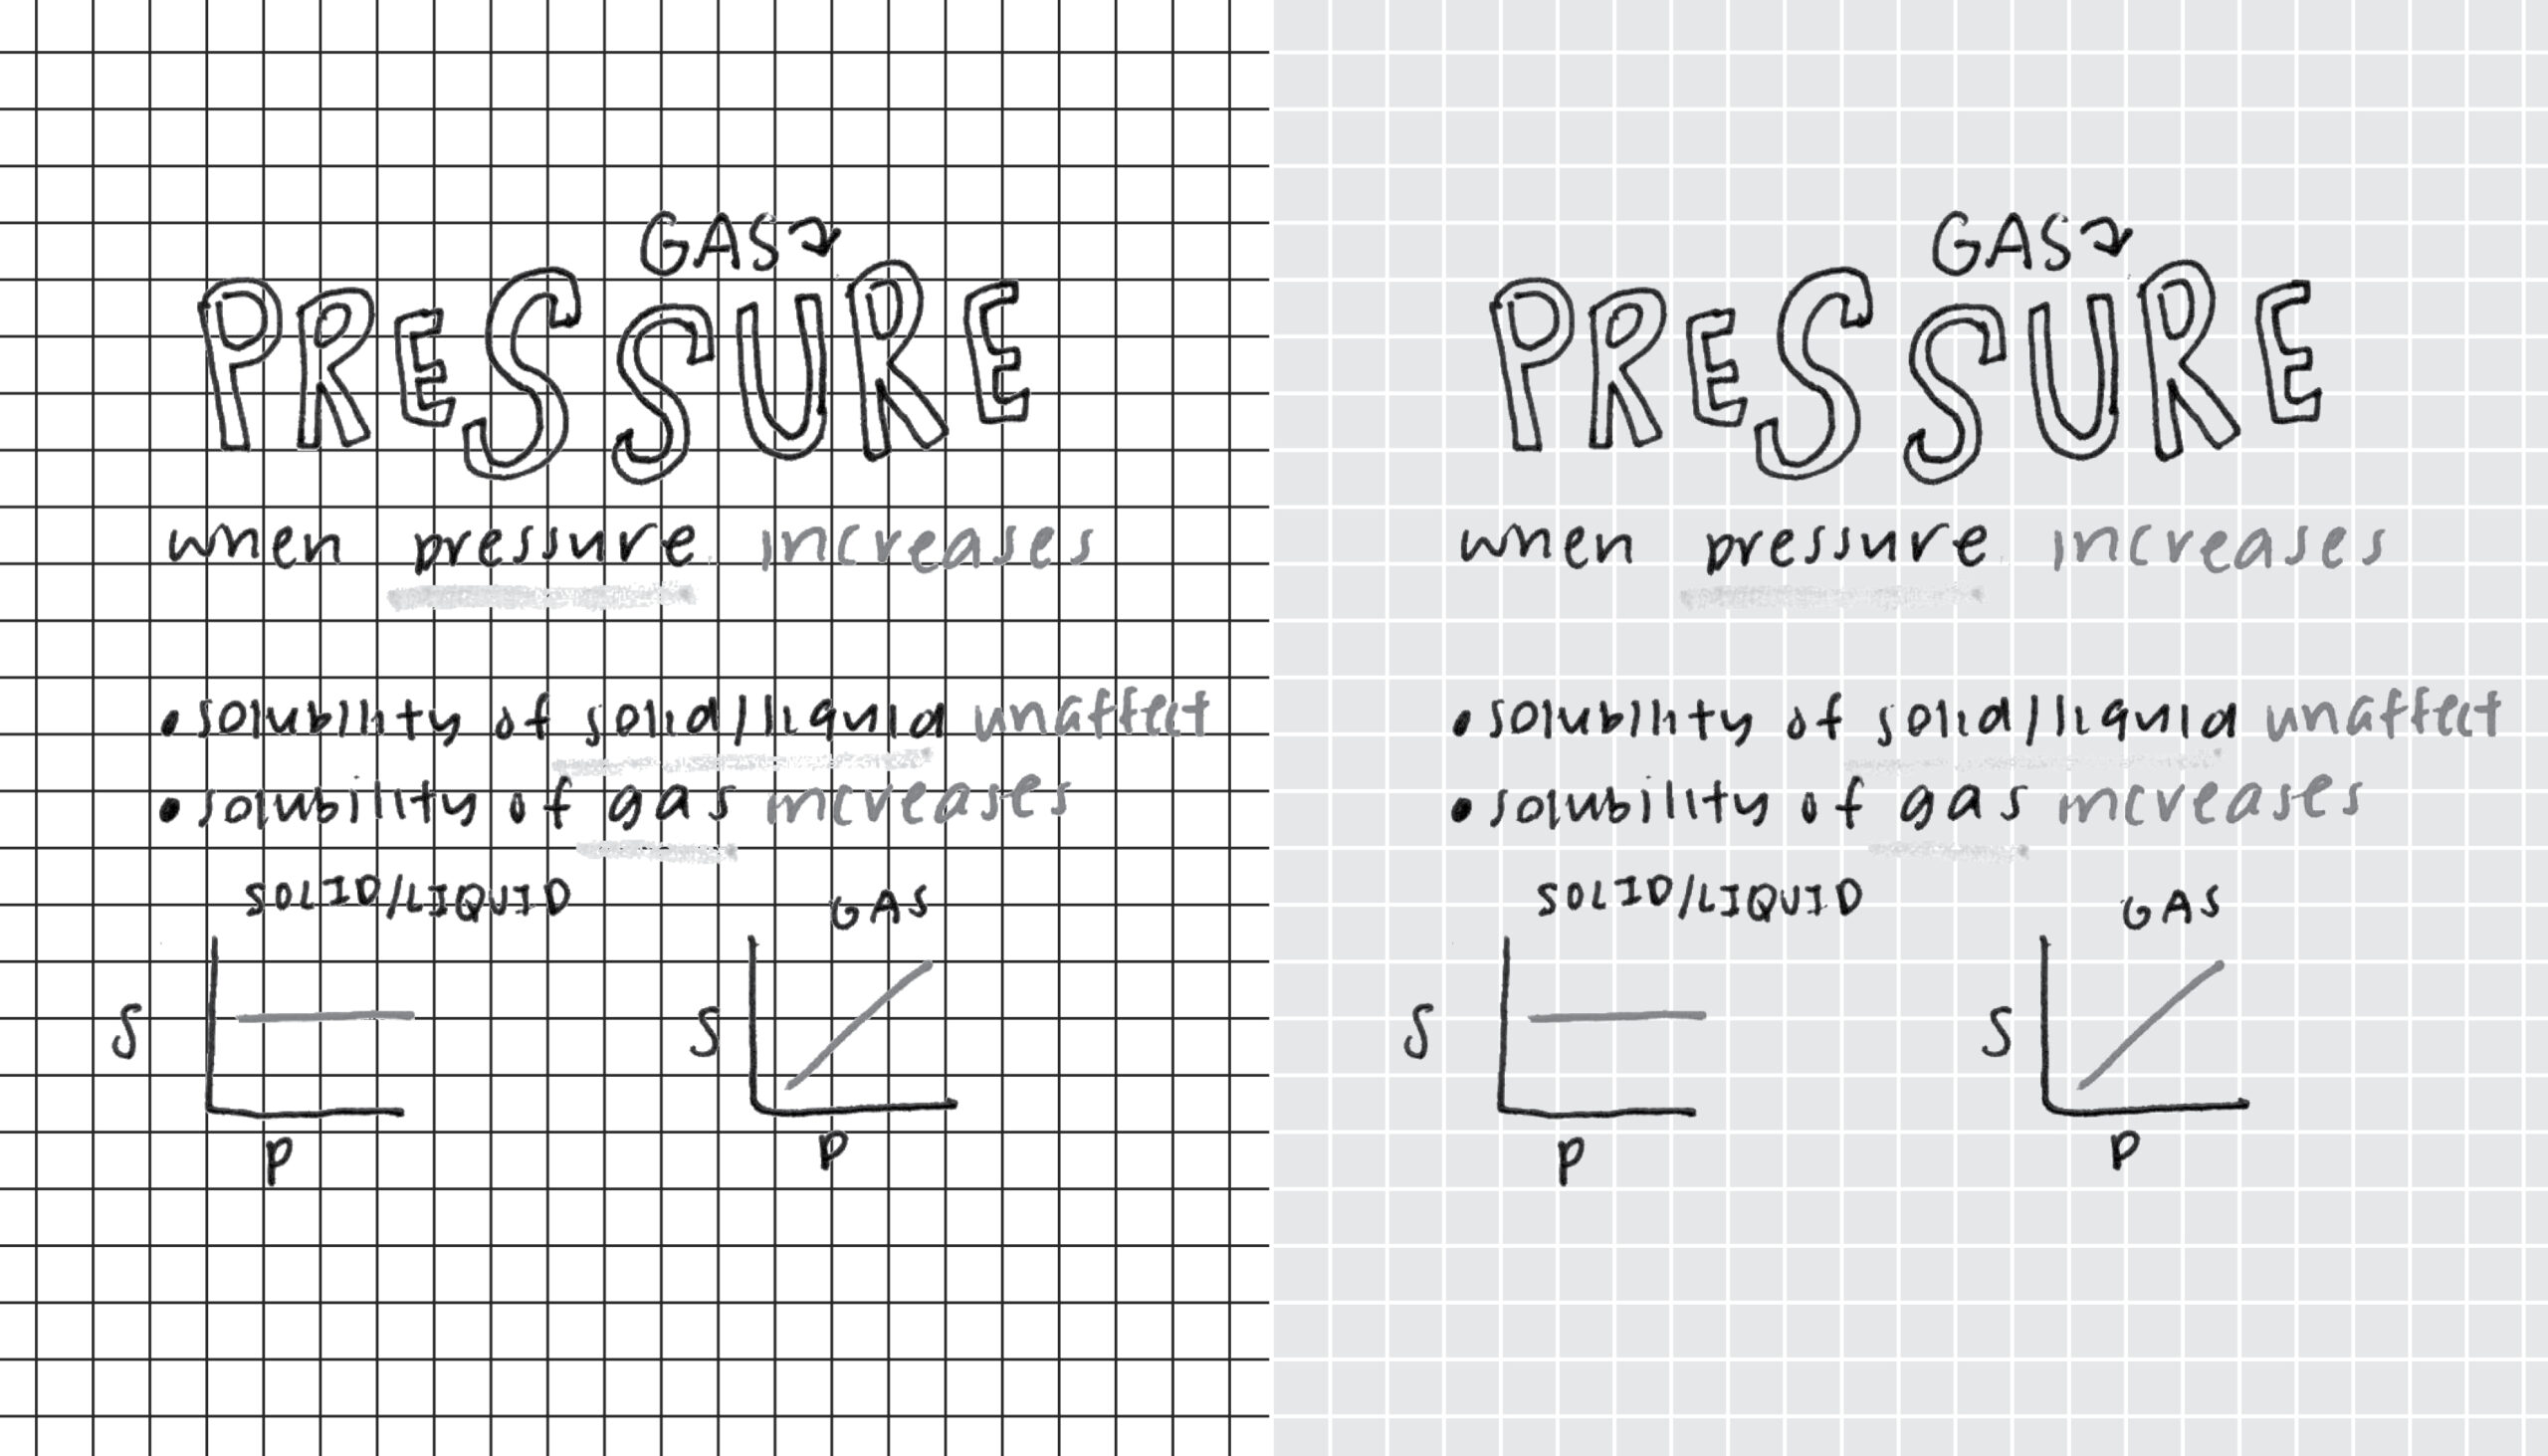 GAS
PRESSURE
when pressure increases
•solubility of solid/liquid unaffect
•solubility of gas increases
SOLID/LIQUID
GAS
S
S
P
P
GAS
PRESSURE
when pressure increases
•solubility of solid/liquid unaffect
•solubility of gas increases
SOLID/LIQUID
GAS
S
S
P
P